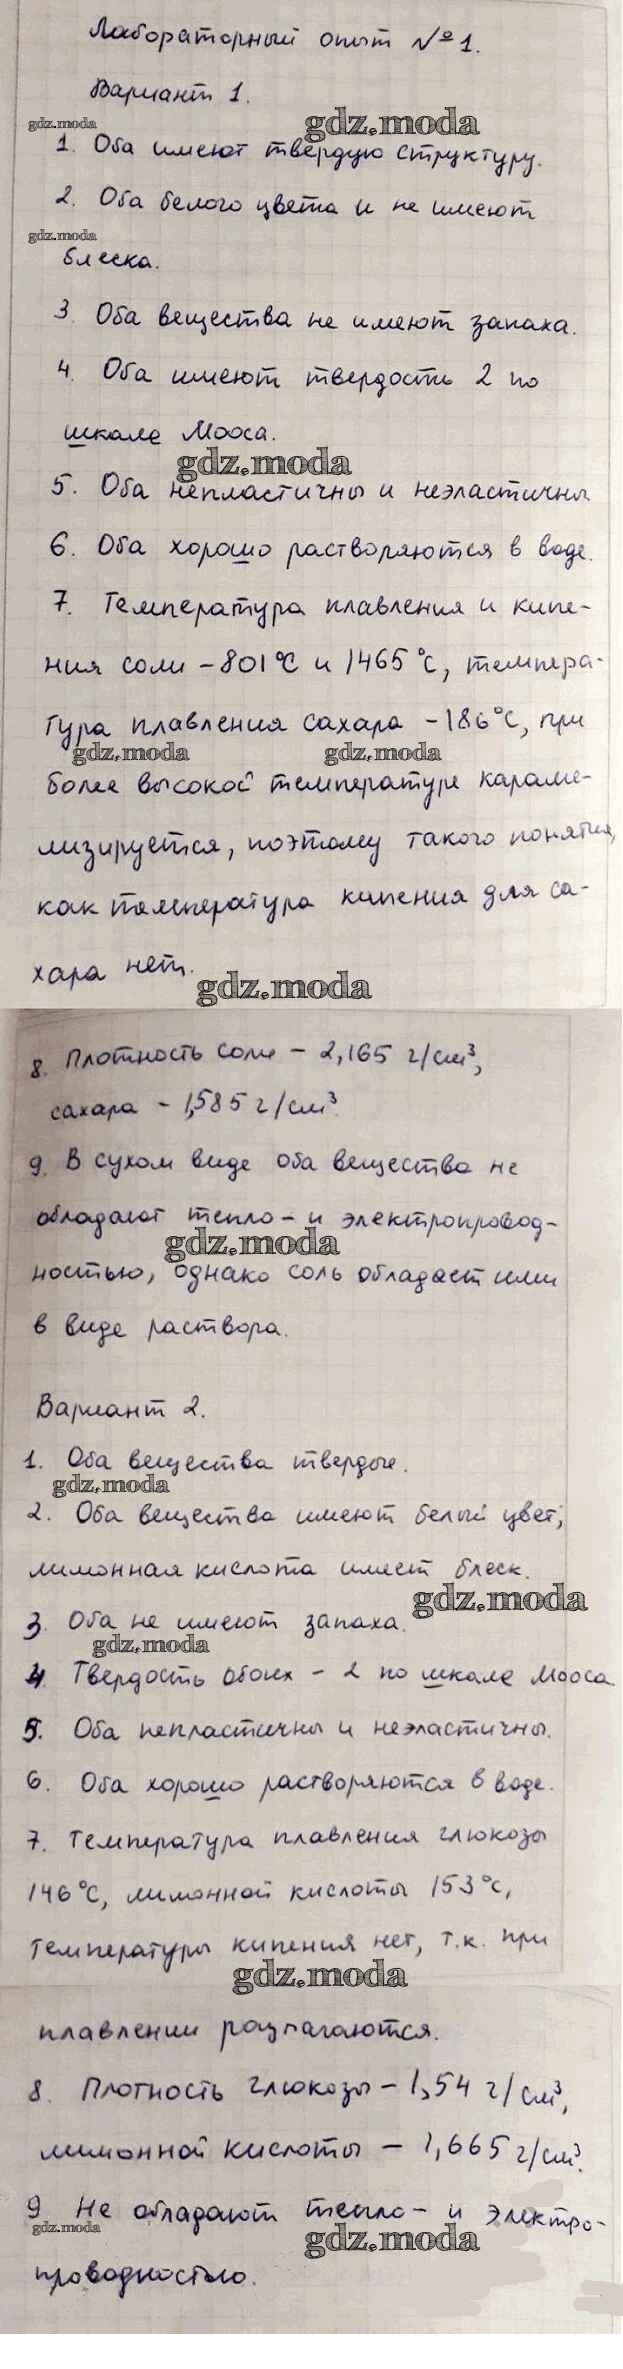 Лабораторный опыт №1.
Вариант 1.
gdz.moda
gdz.moda
1. Оба имеют твердую структуру.
2. Оба белого цвета и не имеют
gdz.moda
блеска.
3. Оба вещества не имеют запаха.
4. Оба имеют твердость 2 по
шкале Мооса.
gdz.moda
5. Оба непластичны и неэластичны
6. Оба хорошо растворяются в воде.
7. Температура плавления и кипе-
ния соли - 801°С и 1465°С, темпера-
тура плавления сахара - 186°С, при
gdz.moda
gdz.moda
более высокой температуре караме-
лизируется, поэтому такого понятия,
как температура кипения для са-
хара нет.
gdz.moda
8. Плотность соли - 2,165 г/см³,
сахара - 1,585 г/см³.
9. В сухом виде оба вещества не
обладают тепло- и электропровод-
gdz.moda
ностью, однако соль обладает ими
в виде раствора.
Вариант 2.
1. Оба вещества твердые.
gdz.moda
2. Оба вещества имеют белый цвет,
лимонная кислота имеет блеск.
gdz.moda
3. Оба не имеют запаха.
gdz.moda
4. Твердость обоих - 2 по шкале Мооса.
5. Оба непластичны и неэластичны.
6. Оба хорошо растворяются в воде.
7. Температура плавления глюкозы
146°С, лимонной кислоты 153°С,
температуры кипения нет, т.к. при
gdz.moda
плавлении разлагаются.
8. Плотность глюкозы - 1,54 г/см³,
лимонной кислоты - 1,665 г/см³.
9 Не обладают тепло- и электро-
gdz.moda
gdz.moda
проводностью.